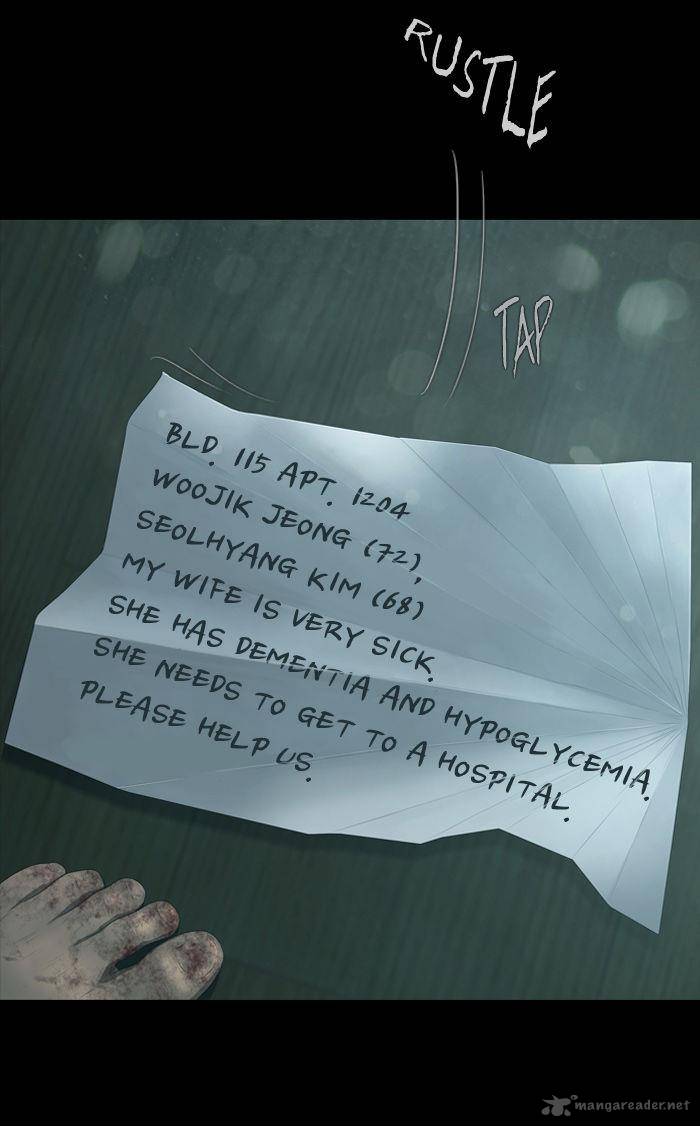 RUSTLE
TAP
BLD. 115 APT. 1204
WOOJIK JEONG (72),
SEOLHYANG KIM (68)
MY WIFE IS VERY SICK.
SHE HAS DEMENTIA AND HYPOGLYCEMIA.
SHE NEEDS TO GET TO A HOSPITAL.
PLEASE HELP US.
mangareader.net